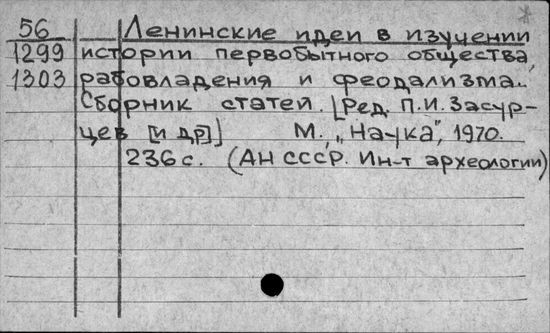 56 Ленинские идеи в изучении
1299 истории первобытного общества,
1303 рабовладения и феодализма.
Сборник статей. [Ред. П.И. Засур-
цев [и др]] М., „Наука", 1970.
236 с. (АН СССР. Ин-т археологии)